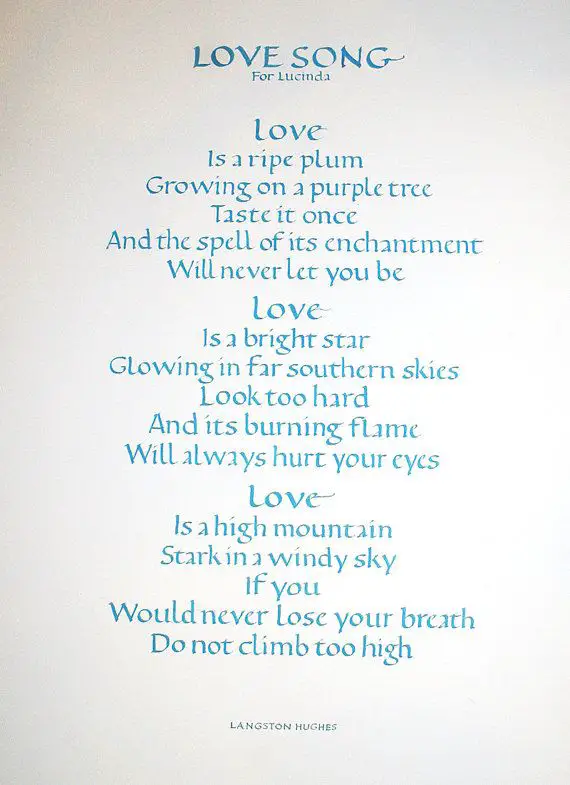 LOVE SONG
For Lucinda
Love
Is a ripe plum
Growing on a purple tree
Taste it once
And the spell of its enchantment
Will never let you be
Love
Is a bright star
Glowing in far southern skies
Look too hard
And its burning flame
Will always hurt your eyes
Love
Is a high mountain
Stark in a windy sky
If you
Would never lose your breath
Do not climb too high
LANGSTON HUGHES